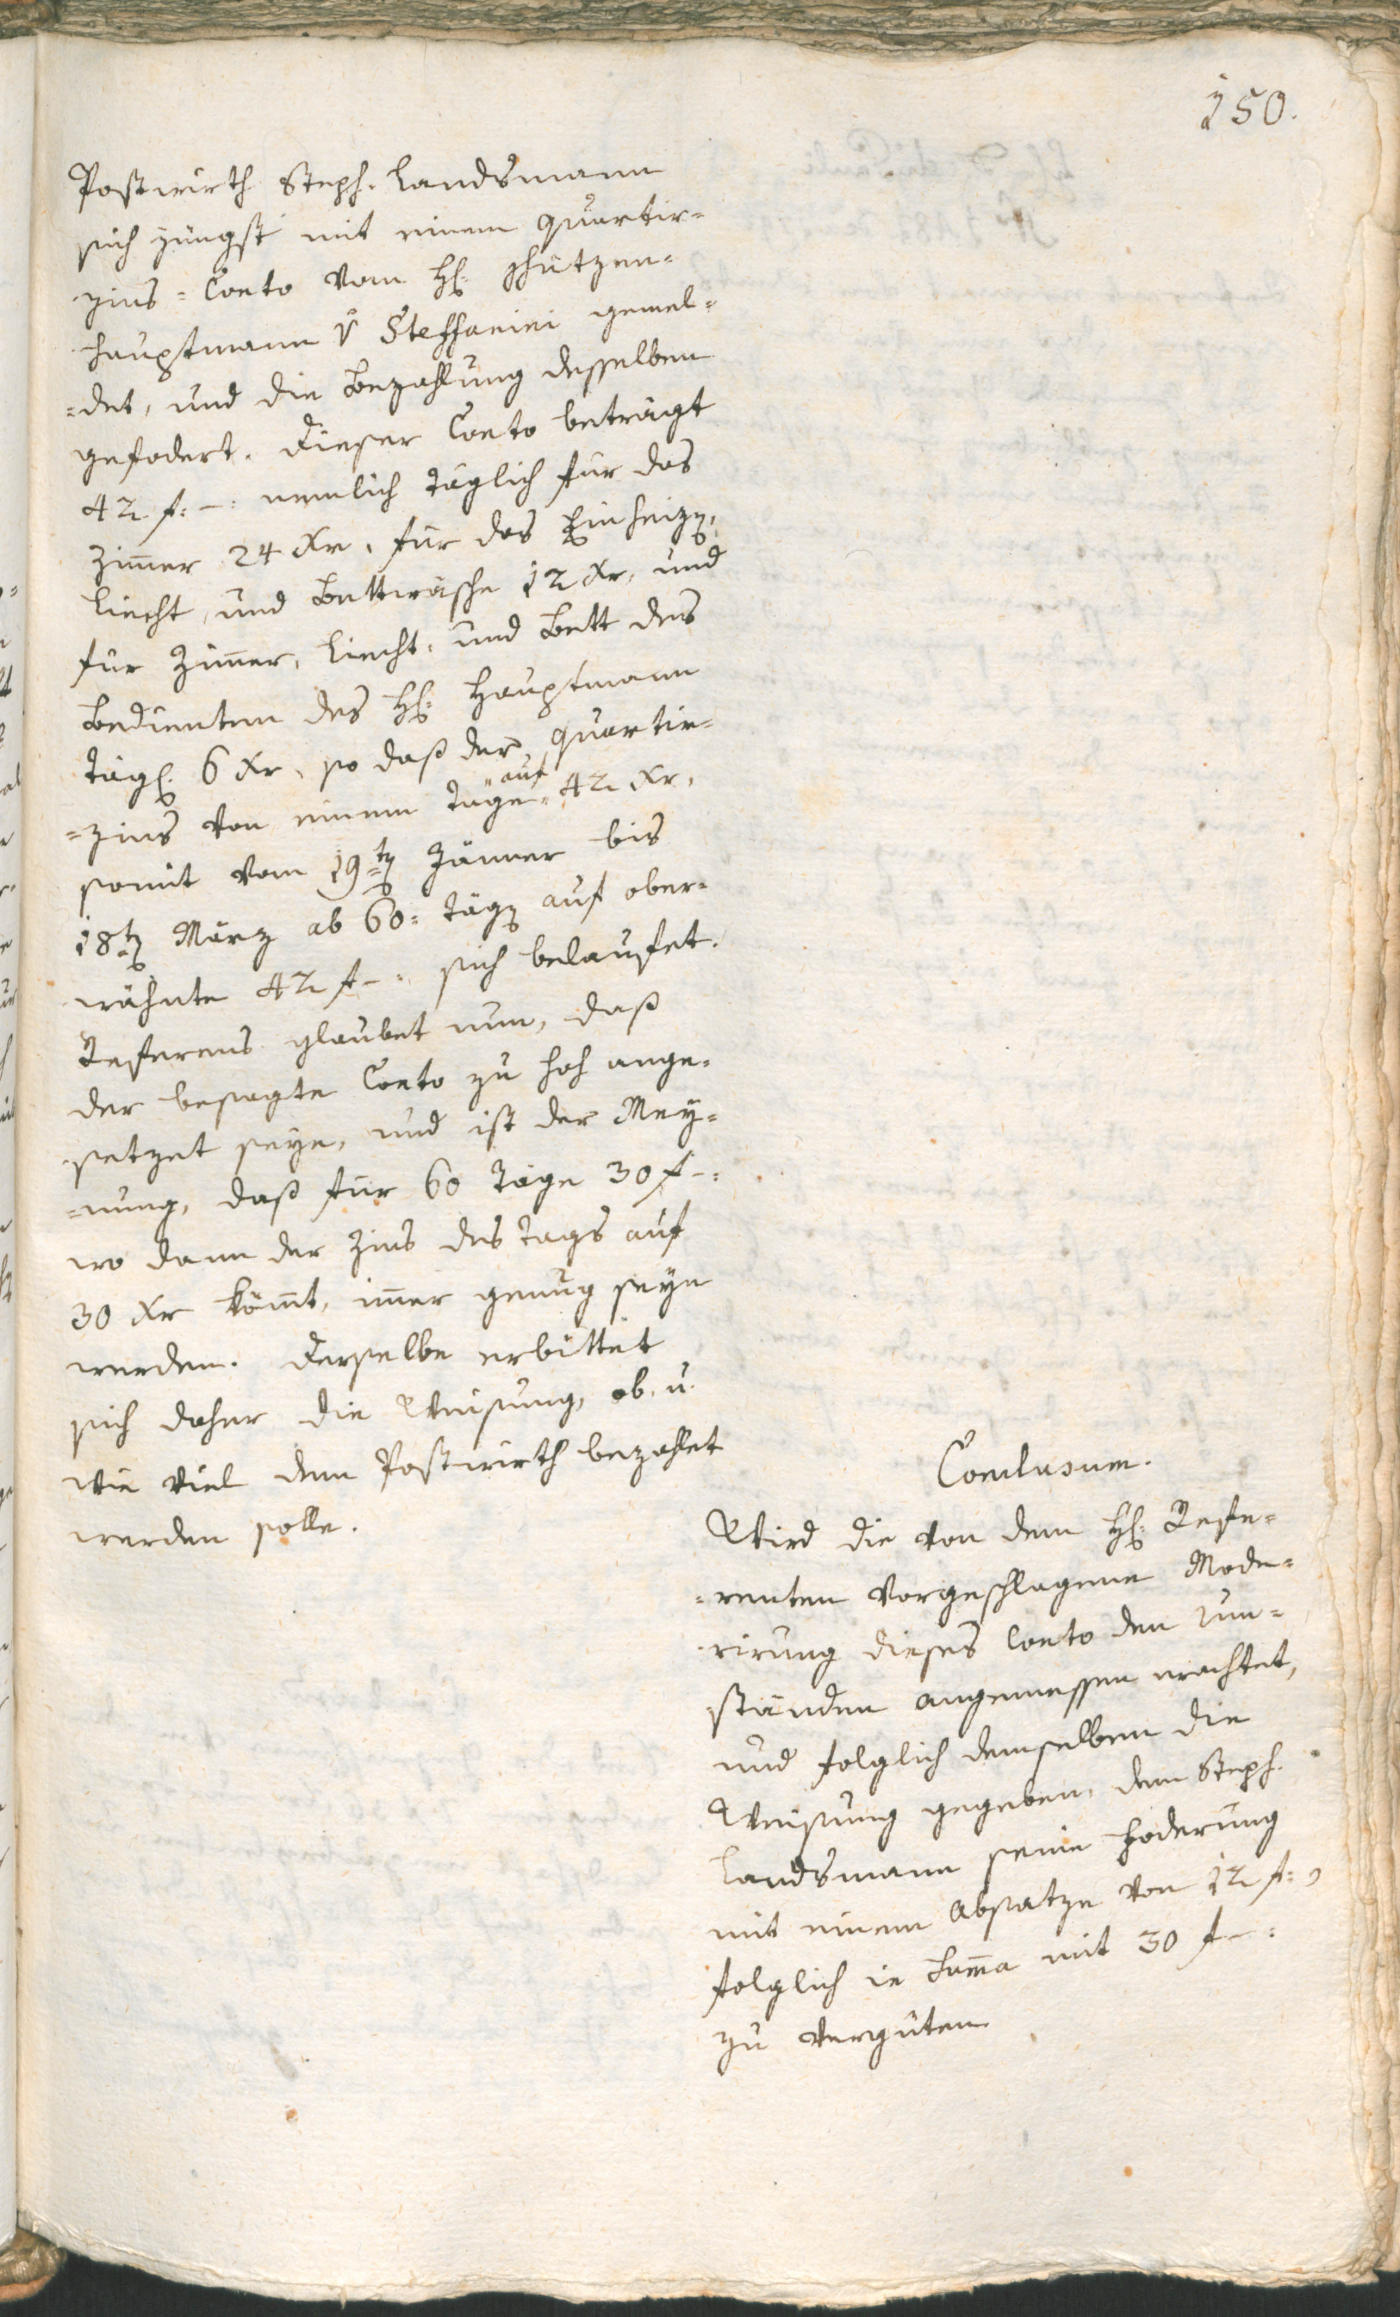 150.
Postwirth Steph. Landsmann
sich jüngst mit einem Quartir=
zins = Conto vom H: Schützen=
hauptmann v Steffanini gemel=
=det, und die Bezahlung desselben
gefodert. Dieser Conto beträgt
42 f: –: nemlich täglich für das
Zim̄er 24 Xr, für das Einheizen,
Liecht, und Bettwäsche 12 Xr, und
für Zim̄er, Liecht, und Bett des
Bedienten des H: Hauptmann
tägl: 6 Xr, so daß der Quartir=
=zins von einem Tage auf 42 Xr,
somit vom 19ten Jänner bis
18ten März ab 60= Tägen auf ober=
wähnte 42 f –: sich belaufet.
Referens glaubet nun, daß
der besagte Conto zu hoh ange=
setzet seye, und ist der Mey=
=nung, daß für 60 Täge 30 f –:
wo dann der Zins des Tags auf
30 Xr köm̄t, im̄er genug seye
werden. Derselbe erbittet
sich daher die Weisung, ob, u.
wie viel dem Postwirth bezahlet
werden solle.
Conclusum.
Wird die von dem H: Refe=
=renten vorgeschlagene Mode=
rirung dieses Conto den Um=
ständen angemessen erachtet,
und folglich demselben die
Weisung gegeben, dem Steph.
Landsmann seine Foderung
mit einem Absatze von 12 f:,
folglich in Sum̄a mit 30 f –:
zu vergüten.